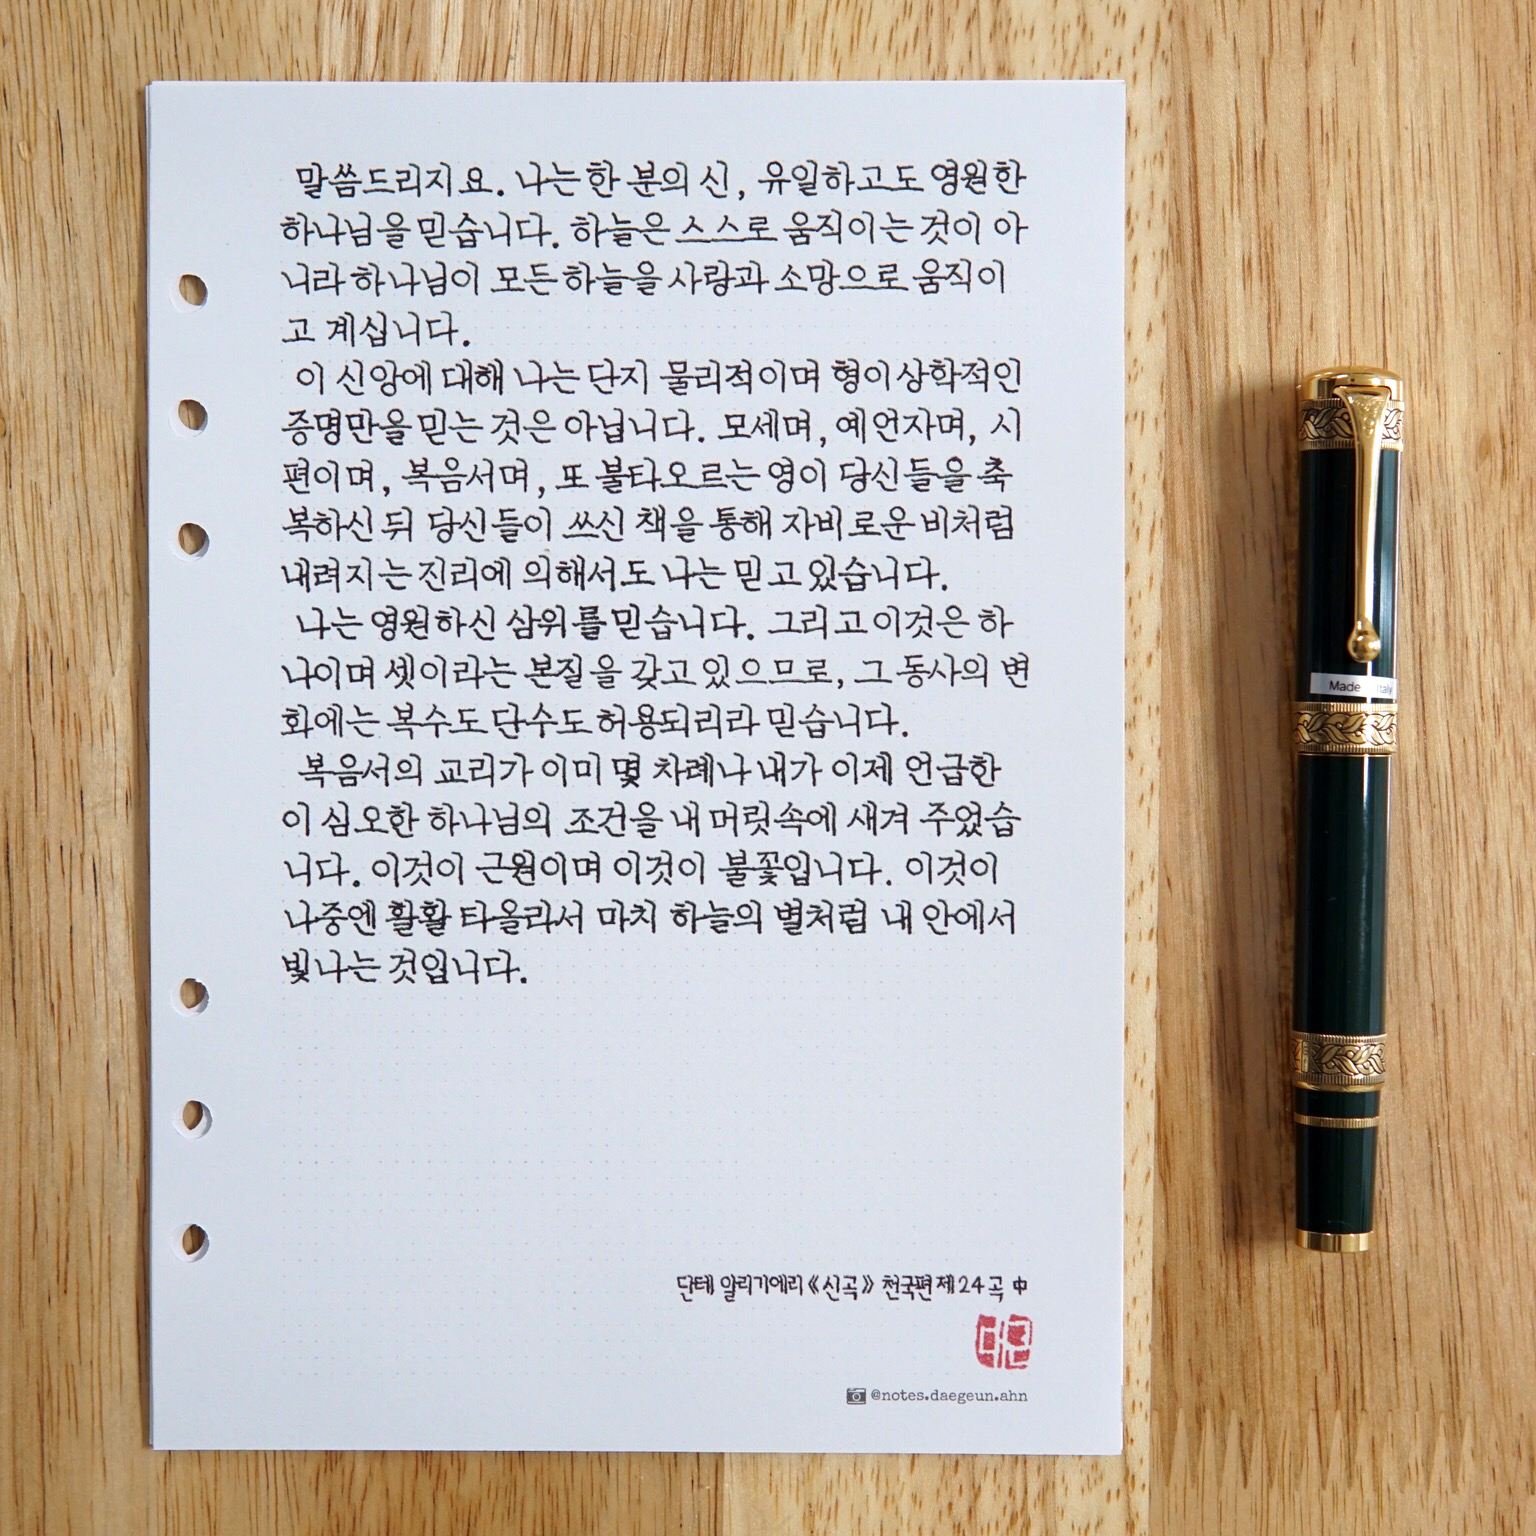 말씀드리지요. 나는 한 분의 신, 유일하고도 영원한
하나님을 믿습니다. 하늘은 스스로 움직이는 것이 아
니라 하나님이 모든 하늘을 사랑과 소망으로 움직이
고 계십니다.
이 신앙에 대해 나는 단지 물리적이며 형이상학적인
증명만을 믿는 것은 아닙니다. 모세며, 예언자며, 시
편이며, 복음서며, 또 불타오르는 영이 당신들을 축
복하신 뒤 당신들이 쓰신 책을 통해 자비로운 비처럼
내려지는 진리에 의해서도 나는 믿고 있습니다.
나는 영원하신 삼위를 믿습니다. 그리고 이것은 하
나이며 셋이라는 본질을 갖고 있으므로, 그 동사의 변
화에는 복수도 단수도 허용되리라 믿습니다.
복음서의 교리가 이미 몇 차례나 내가 이제 언급한
이 심오한 하나님의 조건을 내 머릿속에 새겨 주었습
니다. 이것이 근원이며 이것이 불꽃입니다. 이것이
나중엔 활활 타올라서 마치 하늘의 별처럼 내 안에서
빛나는 것입니다.
단테 알리기에리 《신곡》 천국편 제24곡 中
대근
@notes.daegeun.ahn
Made Italy